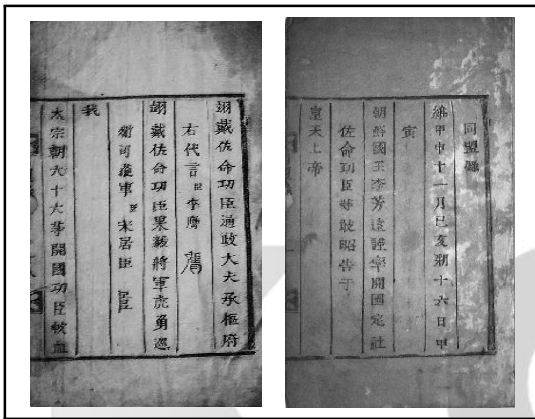 同盟錄
維甲申十一月己亥朔十六日甲
寅
朝鮮國王李芳遠謹率開國定社
佐命功臣等敢昭告于
皇天上帝
翊戴佐命功臣通政大夫承樞府
右代言臣李膺
翊戴佐命功臣果毅將軍虎勇巡
衛司護軍臣宋居臣
我
太宗朝六十六等開國功臣歃血